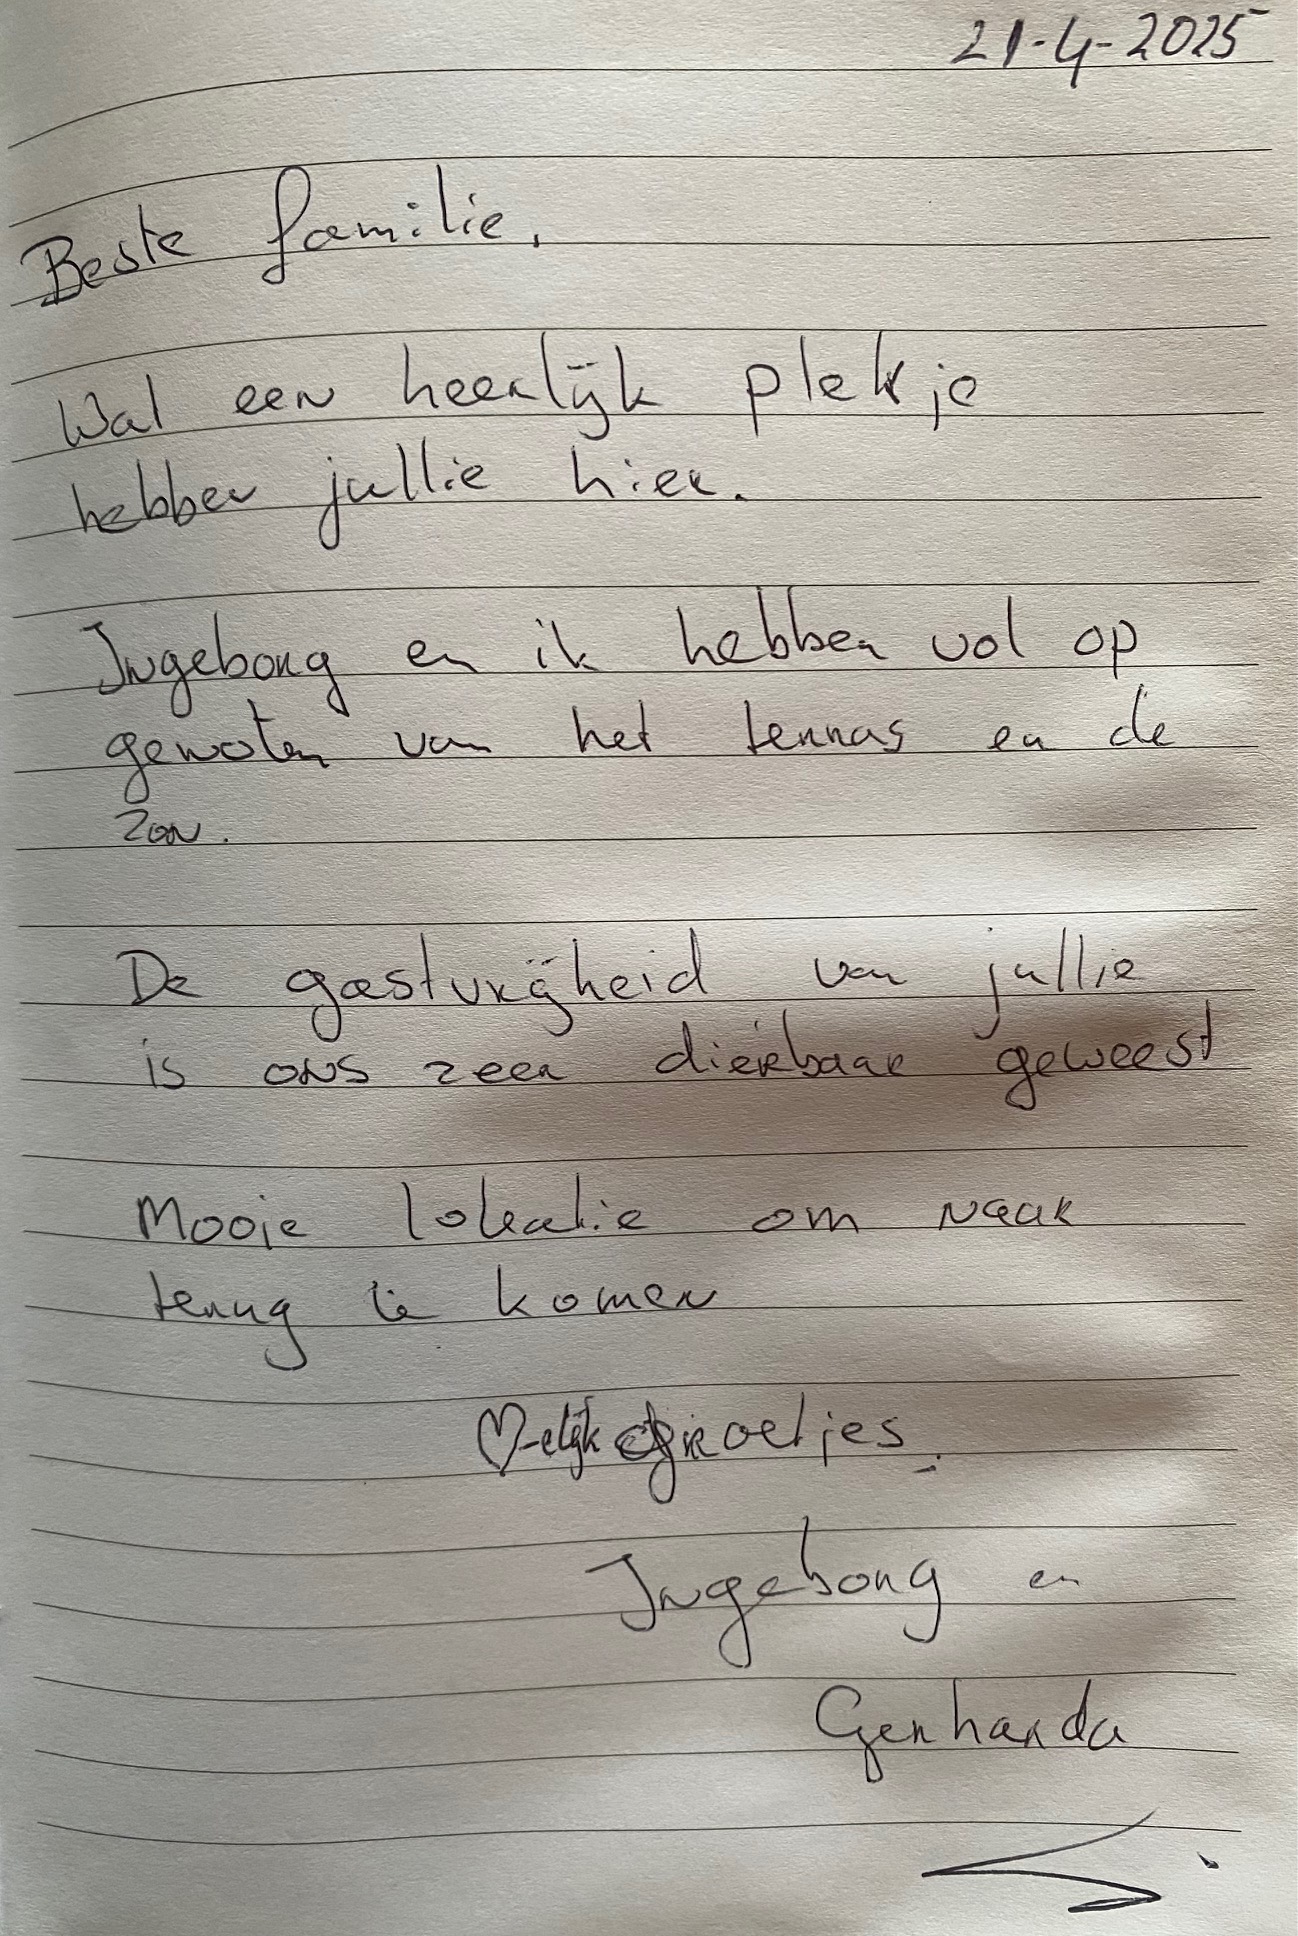 21-4-2025
Beste familie,
Wat een heerlijk plekje
hebben jullie hier.
Ingeborg en ik hebben vol op
genoten van het terras en de
zon.
De gastvrijheid van jullie
is ons zeer dierbaar geweest
Mooie lokatie om naar
terug te komen
♡-elijk groetjes.
Ingeborg en
Gerharda